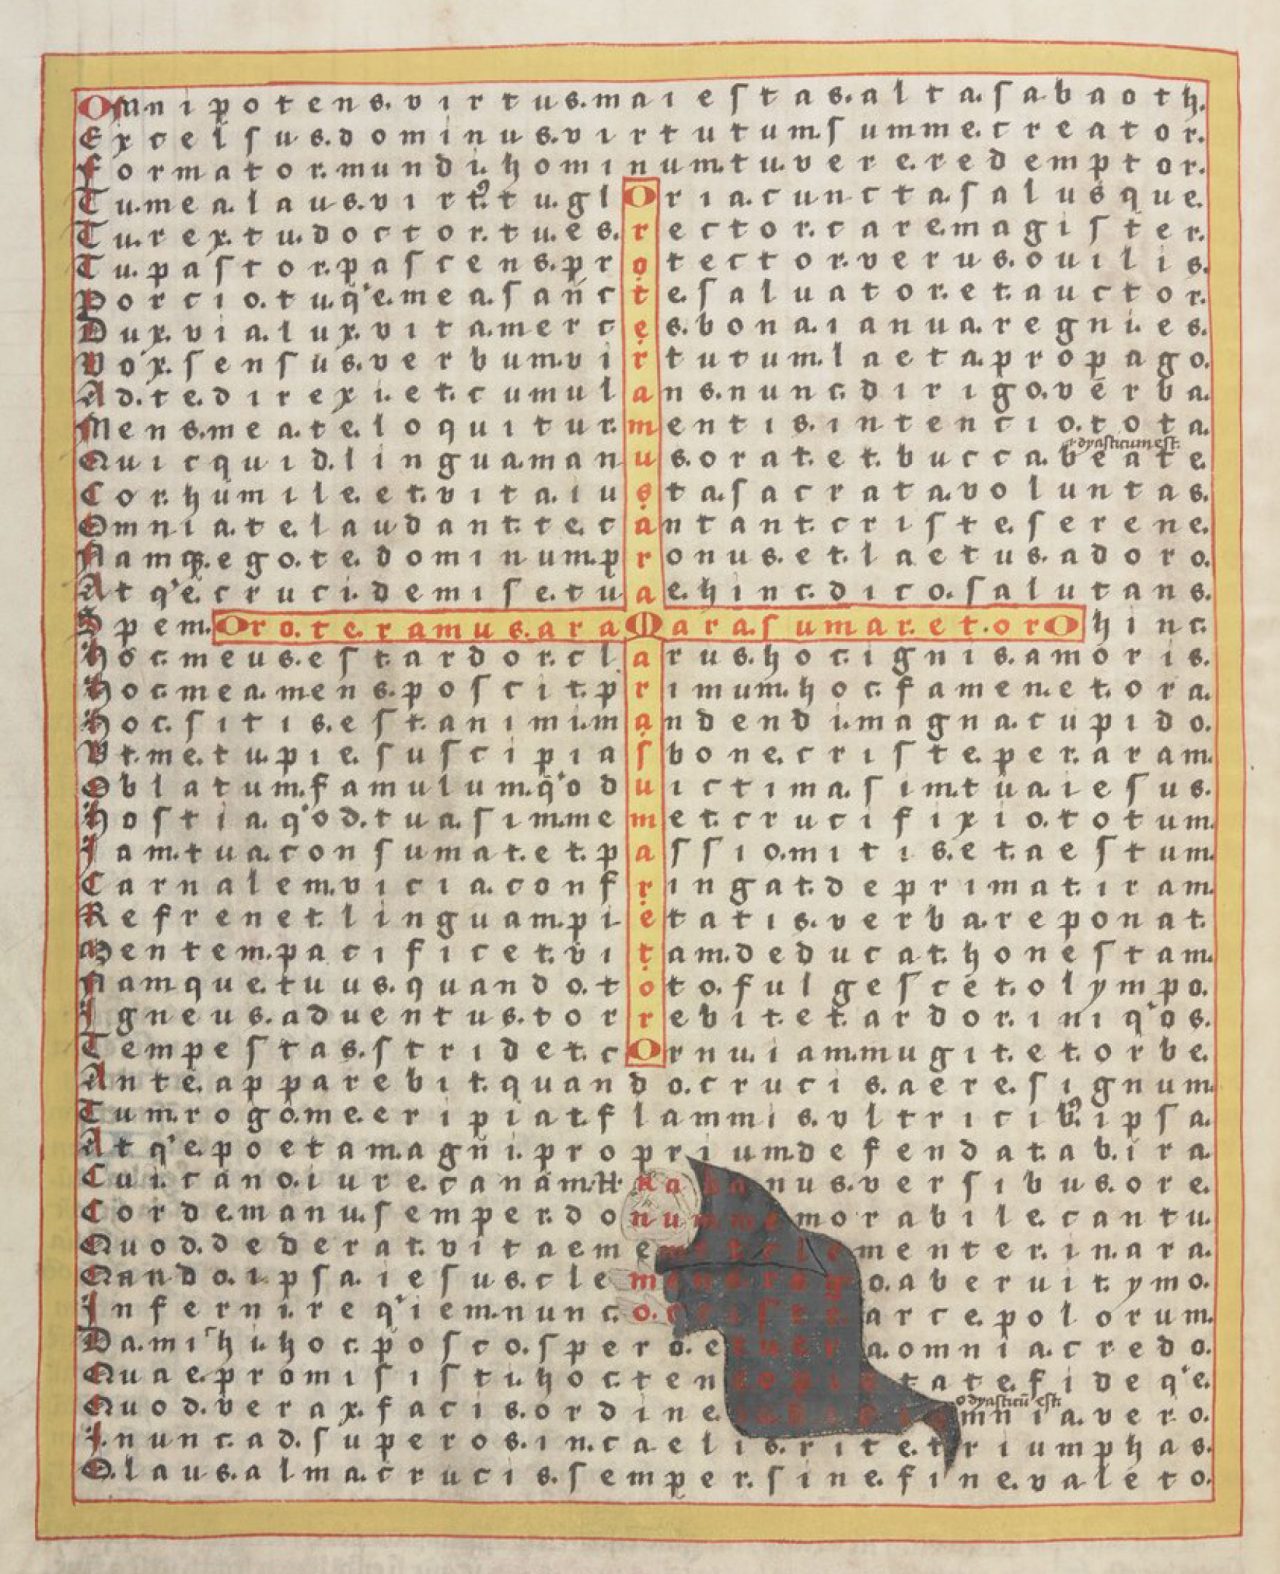 Omnipotens. virtus. maiestas. alta. sabaoth.
Excelsus. dominus. virtutum. summe. creator.
Formator. mundi. hominum. tu. vere. redemptor.
Tu. mea. laus. virt9. tu. glOria. cuncta. salusque.
Tu. rex. tu. doctor. tu. es. rector. care. magister.
Tu. pastor. pascens. protector. verus. ouilis.
Porcio. tu. q'e. mea. sancte. saluator. et. auctor.
Dux. via. lux. vita. merces. bona. ianua. regni. es.
Vox. sensus. verbum. virtutum. laeta. propago.
Ad. te. direxi. et. cumulans. nunc. dirigo. verba.
Mens. mea. te. loquitur. mentis. intencio. tota.
dyasticum est.
Quicquid. lingua. manus. orat. et. bucca. beate.
Cor. humile. et. vita. iusta. sacrata. voluntas.
Omnia. te. laudant. te. cantant. criste. serene.
Namq3. ego. te. dominum. pronus. et. laetus. adoro.
Atq'e. cruci. demise. tuae. hinc. dico. salutans.
Spem. Oro. te. ramus. ara Mara. sumar. et. orO hinc.
Hoc. meus. est. ardor. clarus. hoc. ignis. amoris.
Hoc. mea. mens. poscit. primum. hoc. famen. et. ora.
Hoc. sitis. est. animi. mandendi. magna. cupido.
Vt. me. tu. pie. suscipias bone. criste. per. aram.
Oblatum. famulum. q'od uictima. sim. tua. iesus.
Hostia. q'od. tua. sim. memet. crucifixio. totum.
Iam. tua. consumat. et. passio. mitis. et. aestum.
Carnalem. vicia. confringat. deprimat. iram.
Refrenet. linguam. pietatis. verba. reponat.
Mentem. pacificet. vitam. deducat. honestam.
Namque. tuus. quando. toto. fulgescet. olympo.
Igneus. aduentus. torrebit. et. ardor. iniq'os.
Tempestas. stridet. cOrnu. iam. mugit. et. orbe.
Ante. apparebit. quando. crucis. aere. signum.
Tum. rogo. me. eripiat. flammis. vltricib9. ipsa.
Atq'e. poeta. magni. proprium. defendat. ab. ira.
Cui. cano. iure. canam. Hrabanus. versibus. ore.
Corde. manu. semper. donum. memorabile. cantu.
Quod. dederat. vitae. me. met. clementer. in. ara.
Quando. ipsa. iesus. clemens. rogo. ab eruit. ymo.
Inferni. req'iem. nunc. o. criste arce. polorum.
Da. mihi. hoc. posco. spero. et uera. omnia. credo.
Quae. promisisti. hoc. tene pietate. fideq'e.
odyasticu est.
Quod. verax. facis. ordine. iudicio omnia. vero.
In. nunc. ad. superos. in. caelis. rite. triumphas.
O. laus. alma. crucis. semper. sine. fine. valeto.